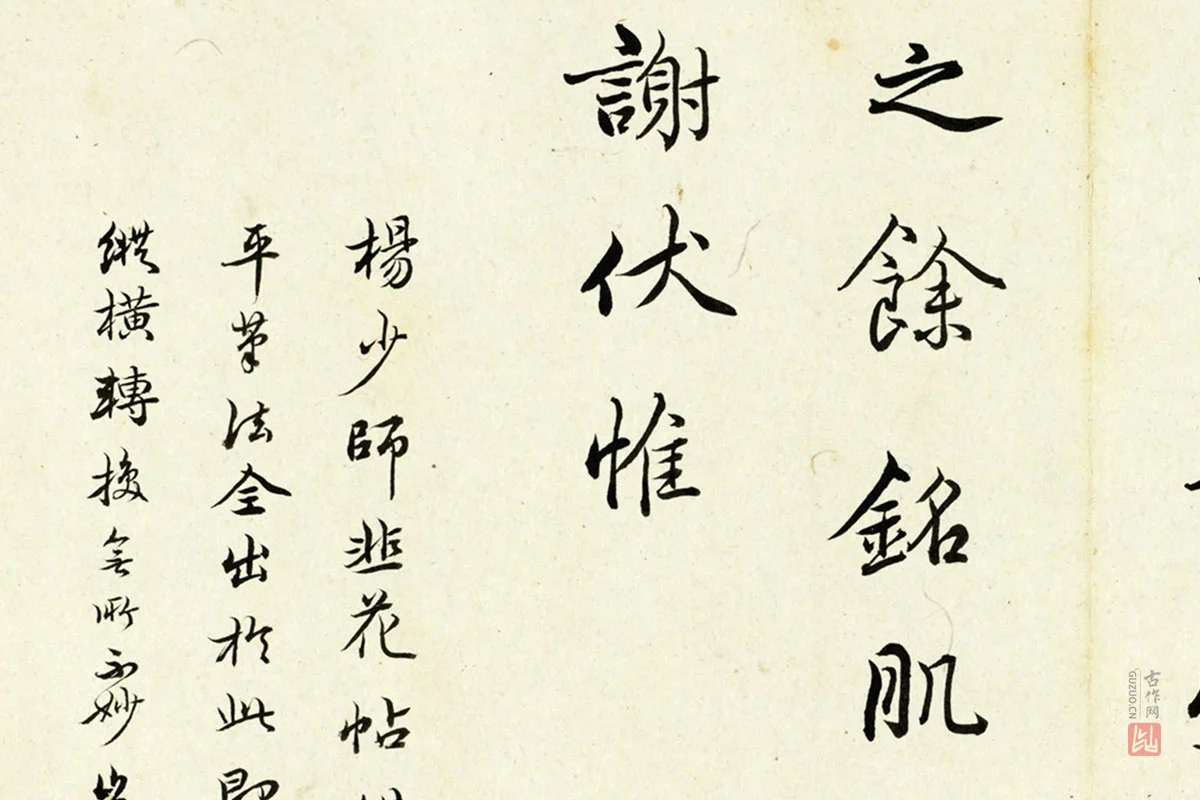 之餘銘肌
謝伏惟
楊少師韭花帖
平筆法全出於此即
縱橫轉換無所不妙
古作网
GUZUO.CN